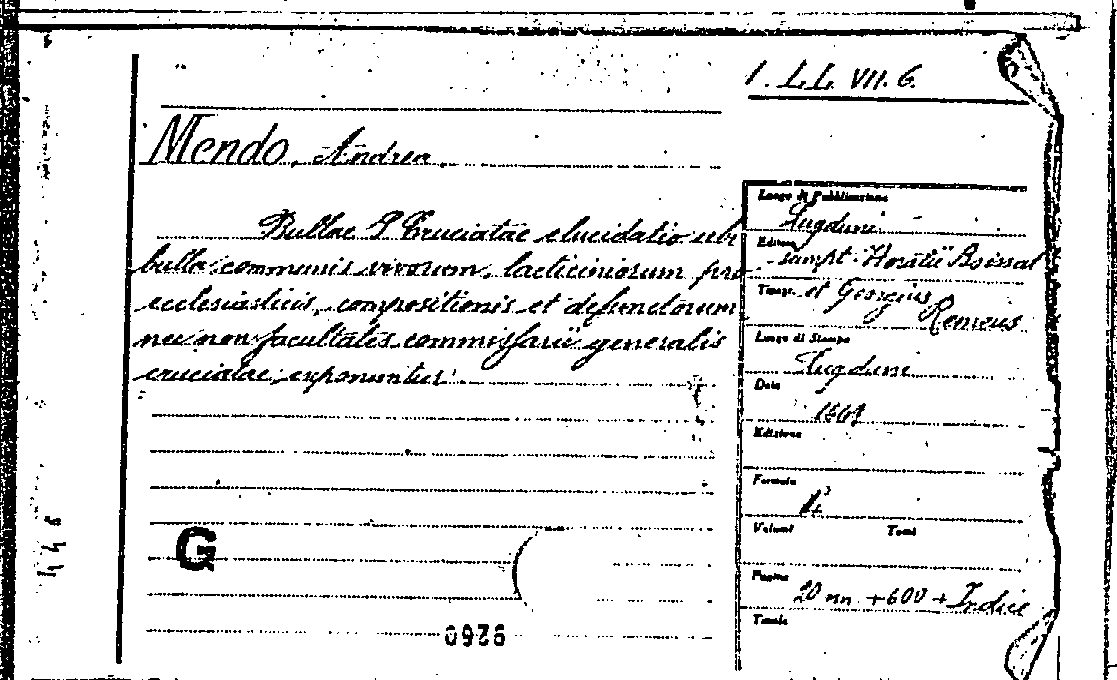 1. L.L. VII. 6.
Mendo, Andrea.
Bullae S Cruciatae elucidatio ubi
bulla communis vivorum, lacticiniorum pro
ecclesiasticis, compositionis et defunctorum
nec non facultates commissarii generalis
cruciatae, exponuntur
Luogo di Pubblicazione
Lugduni
Editore
sumpt. Horatii Boissat
et Georgius
Remeus
Luogo di Stampa
Lugduni
Data
Edizione
Formato
Volumi Tomi
Pagine
20 nn +600 + Indice
Tavole
G
0926